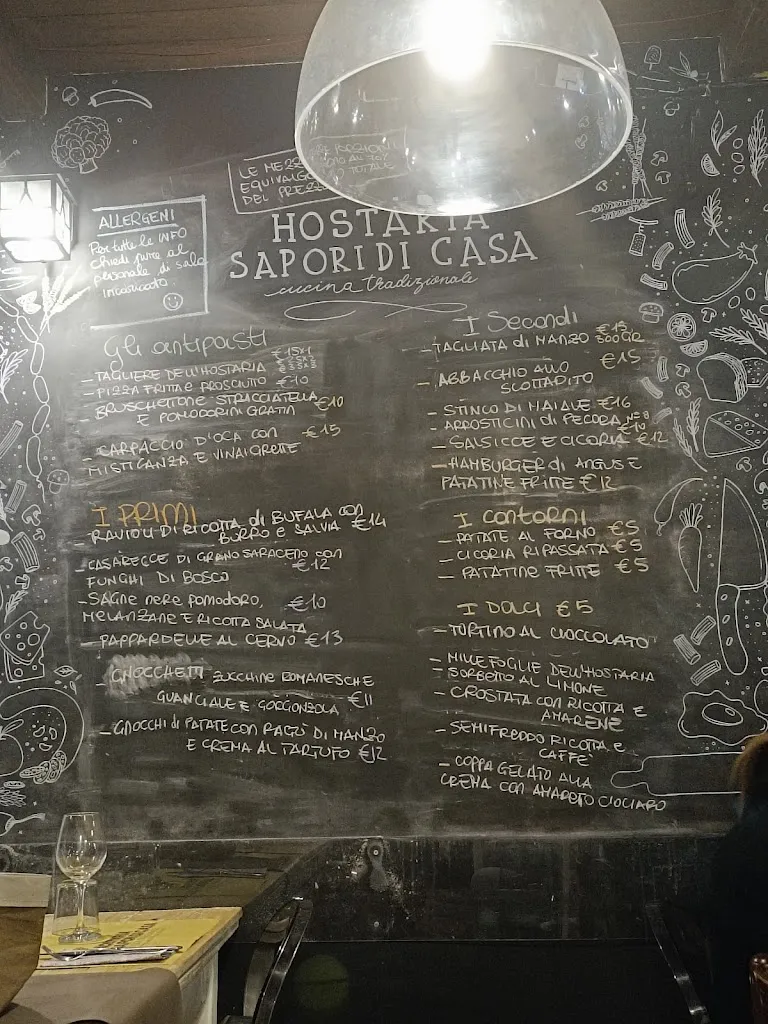 LE MEZZ
EQUIVALGO
DEL PREZZ
TOTALE
ALLERGENI
Per tutte le INFO
chiedi pure al
personale di sala
incaricato
HOSTARIA
SAPORI DI CASA
cucina tradizionale
Gli antipasti
- TAGLIERE DELL'HOSTARIA €15x1
- PIZZA FRITTA E PROSCIUTTO €10
BRUSCHETTONE STRACCIATELLA
E POMODORINI GRATIN €10
- CARPACCIO D'OCA CON €15
MISTICANZA E VINAIGRETTE
I PRIMI
- RAVIOLI DI RICOTTA di BUFALA CON
BURRO E SALVIA €14
- CASARECCE DI GRANO SARACENO CON
FUNGHI DI BOSCO €12
- SAGNE nere pomodoro, €10
MELANZANE E RICOTTA SALATA
PAPPARDELLE AL CERVO €13
- GNOCCHETTI ZUCCHINE ROMANESCHE
GUANCIALE E GORGONZOLA €11
- GNOCCHI di PATATE CON RAGÙ DI MANZO
E CREMA AL TARTUFO €12
I Secondi
- TAGLIATA di MANZO 300GR €15
- ABBACCHIO ALLO €15
SCOTTADITO
- STINCO DI MAIALE €16
- ARROSTICINI DI PECORA N=8 €10
- SALSICCE E CICORIA €12
- HAMBURGER di ANGUS E
PATATINE FRITTE €12
I Contorni
- PATATE AL FORNO €5
- CICORIA RIPASSATA €5
- PATATINE FRITTE €5
I DOLCI €5
- TORTINO AL CIOCCOLATO
- MILLEFOGLIE DELL'HOSTARIA
- SORBETTO AL LIMONE
- CROSTATA CON RICOTTA E
AMARENE
- SEMIFREDDO RICOTTA E
CAFFE'
- COPPA GELATO ALLA
CREMA CON AMARETO CIOCIARO